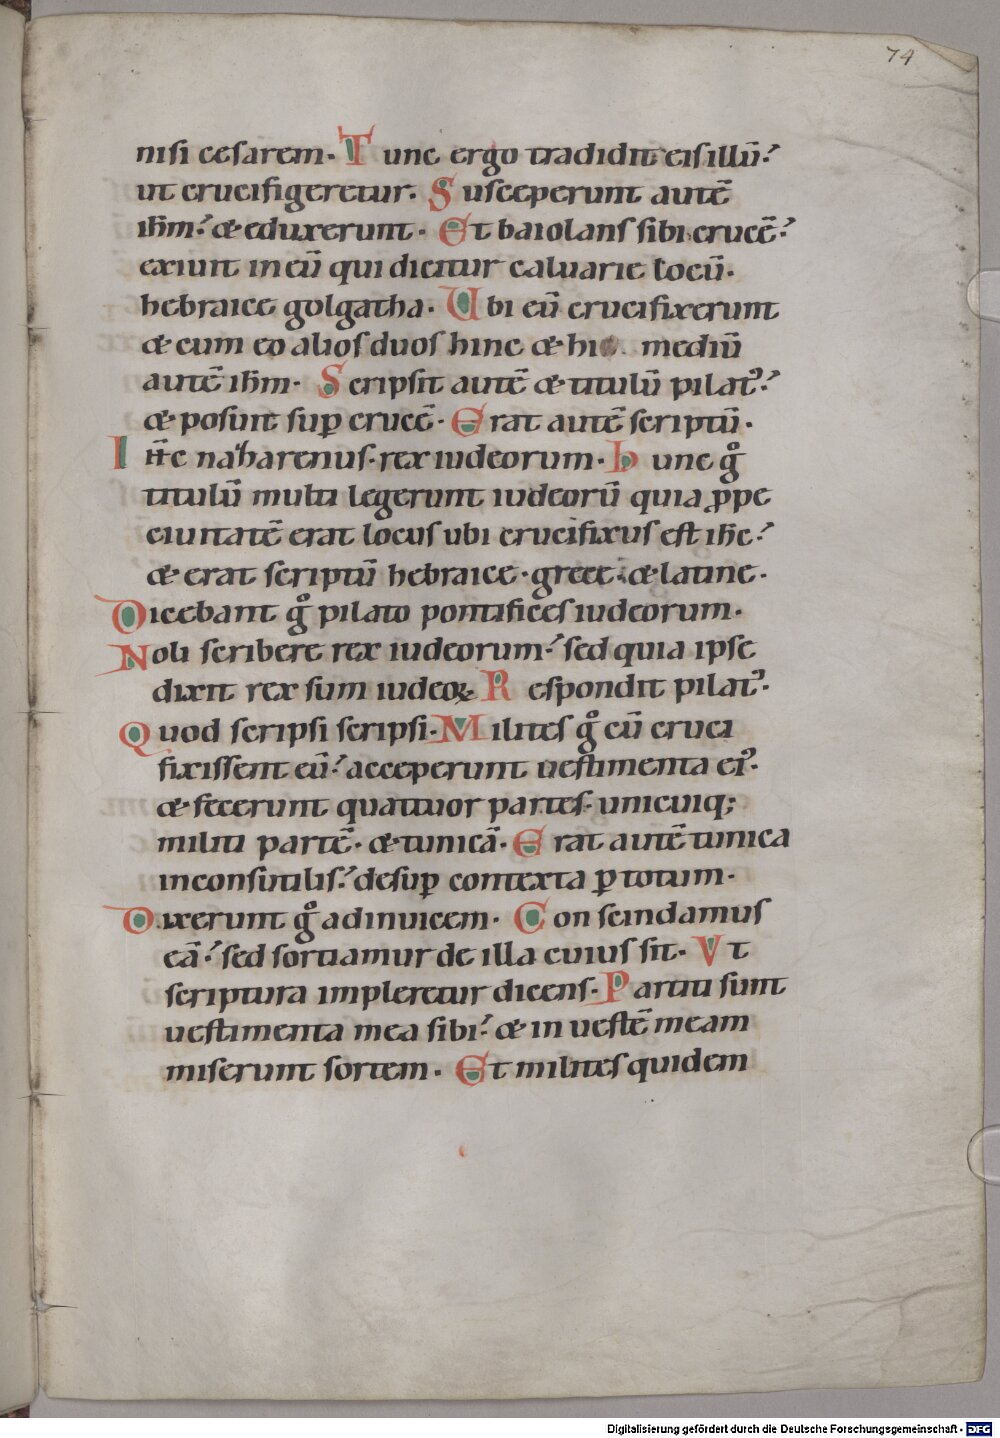 74
nisi cesarem. Tunc ergo tradidit eis illū.
ut crucifigeretur. Susceperunt autē
ih̄m. & eduxerunt. Et baiolans sibi crucē.
exiuit in eū qui dicitur caluarie locū.
hebraice golgatha. Ubi eū crucifixerunt
& cum eo alios duos hinc & hi mediū
autē ih̄m. Scripsit autē & titulū pilatꝰ.
& posuit suꝑ crucē. Erat autē scriptū.
Ih̄c nazarenus. rex iudeorum. Hunc gͦ
titulū multi legerunt iudeorū quia ꝓpe
ciuitatē erat locus ubi crucifixus est ih̄c.
& erat scriptū hebraice. grece. & latine.
Dicebant gͦ pilato pontifices iudeorum.
Noli scribere rex iudeorum. sed quia ipse
dixit rex sum iudeoꝝ. Respondit pilatꝰ.
Quod scripsi scripsi. Milites gͦ cū cruci
fixissent eū. acceperunt uestimenta eiꝰ.
& fecerunt quattuor partes. unicuiq;
militi partē. & tunicā. Erat autē tunica
inconsutilis. desuꝑ contexta ꝑ totum.
Dixerunt gͦ adinuicem. Con scindamus
eā. sed sortiamur de illa cuius sit. Vt
scriptura impleretur dicens. Partiti sunt
uestimenta mea sibi. & in uestē meam
miserunt sortem. Et milites quidem
Digitalisierung gefördert durch die Deutsche Forschungsgemeinschaft - DFG